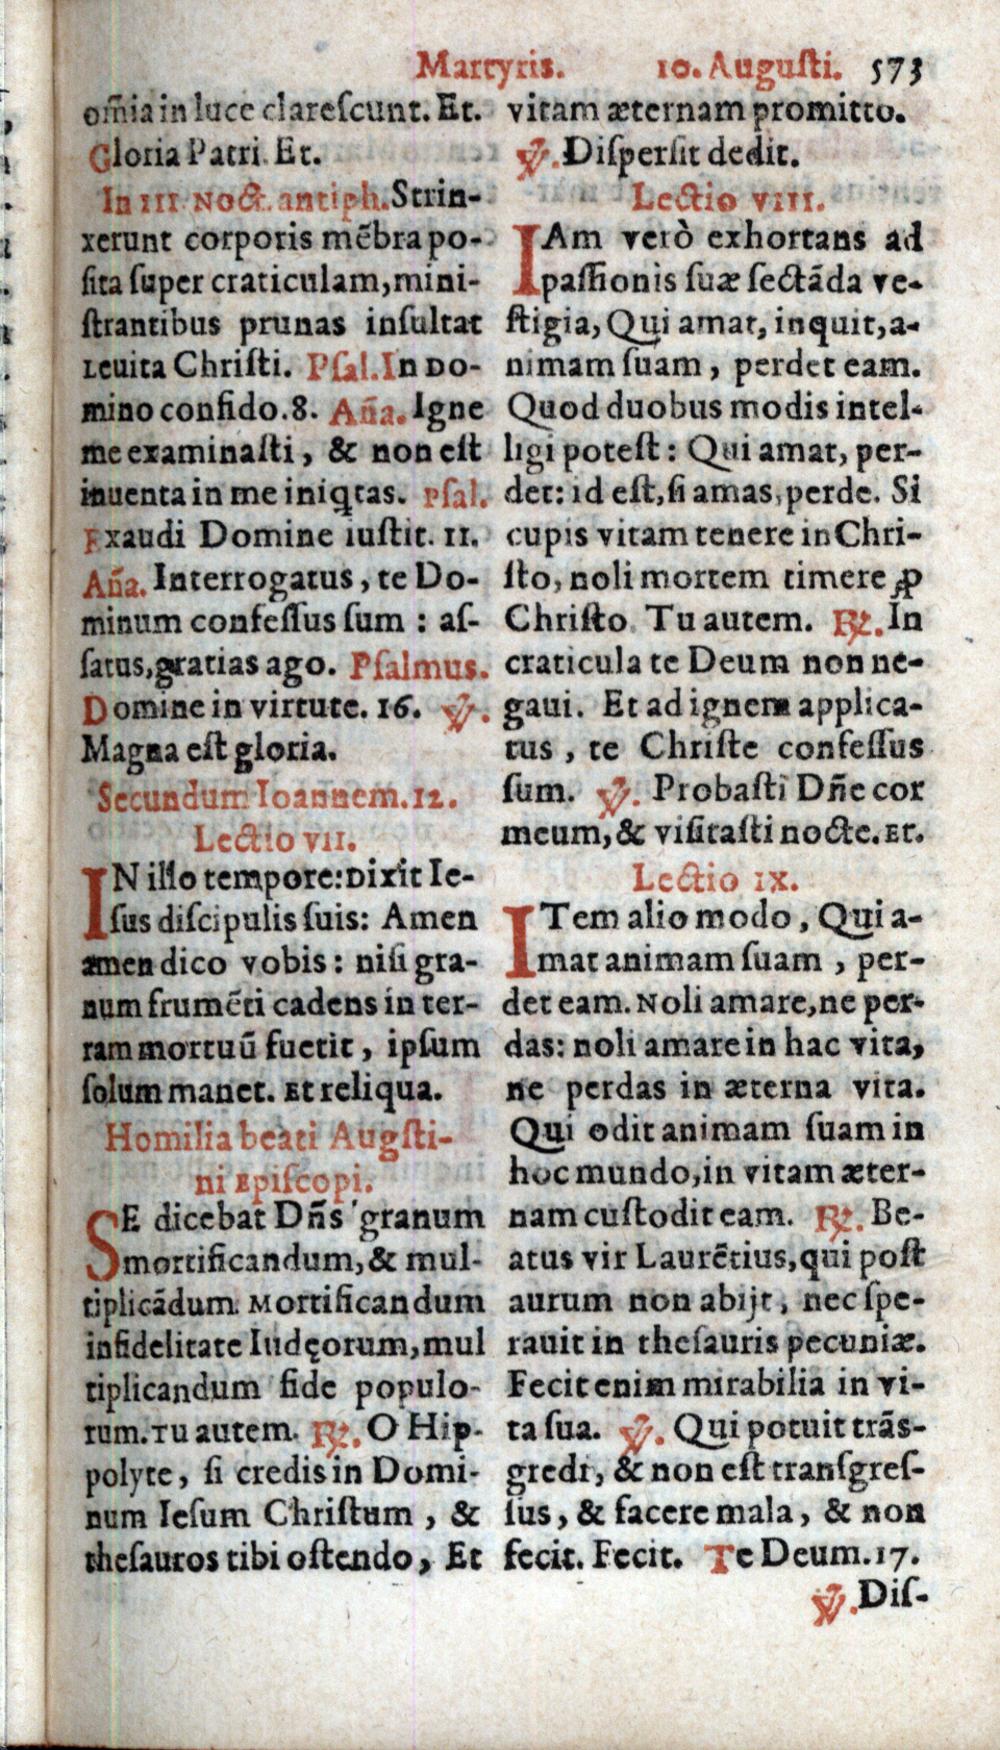 Martyris. 10. Augusti. 573
om̃ia in luce clarescunt. Et.
Gloria Patri. Et.
In III Noct. antiph. Strin-
xerunt corporis mẽbra po-
sita super craticulam, mini-
strantibus prunas insultat
Leuita Christi. Psal. In Do-
mino confido. 8. Añа. Igne
me examinasti, & non est
inuenta in me iniqtas. Psal.
Exaudi Domine iustit. 11.
Aña. Interrogatus, te Do-
minum confessus sum : as-
satus, gratias ago. Psalmus.
Domine in virtute. 16. ℣.
Magna est gloria.
Secundum Ioannem. 12.
Lectio VII.
IN illo tempore: Dixit Ie-
sus discipulis suis: Amen
amen dico vobis: nisi gra-
num frumẽti cadens in ter-
ram mortuũ fuerit, ipsum
solum manet. Et reliqua.
Homilia beati Augsti-
ni Episcopi.
SE dicebat Dñs granum
mortificandum, & mul-
tiplicãdum. Mortificandum
infidelitate Iudęorum, mul
tiplicandum fide populo-
rum. Tu autem. ℟. O Hip-
polyte, si credis in Domi-
num Iesum Christum, &
thesauros tibi ostendo, Et
vitam æternam promitto.
℣. Dispersit dedit.
Lectio VIII.
IAm verò exhortans ad
passionis suæ sectãda ve-
stigia, Qui amat, inquit, a-
nimam suam, perdet eam.
Quod duobus modis intel-
ligi potest: Qui amat, per-
det: id est, si amas, perde. Si
cupis vitam tenere in Chri-
sto, noli mortem timere ꝓ
Christo. Tu autem. ℟. In
craticula te Deum non ne-
gaui. Et ad ignem applica-
tus, te Christe confessus
sum. ℣. Probasti Dñe cor
meum, & visitasti nocte. Et.
Lectio IX.
ITem alio modo, Qui a-
mat animam suam, per-
det eam. Noli amare, ne per-
das: noli amare in hac vita,
ne perdas in æterna vita.
Qui odit animam suam in
hoc mundo, in vitam æter-
nam custodit eam. ℟. Be-
atus vir Laurẽtius, qui post
aurum non abijt, nec spe-
rauit in thesauris pecuniæ.
Fecit enim mirabilia in vi-
ta sua. ℣. Qui potuit trãs-
gredi, & non est transgres-
sus, & facere mala, & non
fecit. Fecit. Te Deum. 17.
℣. Dis-